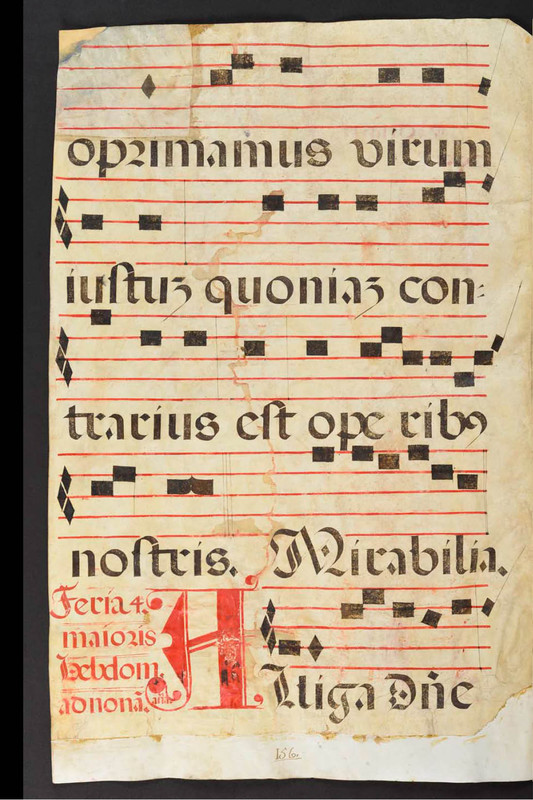 oprimamus virum
iustuʒ quoniaʒ con-
trarius est operibꝯ
nostris. Mirabilia.
Feria 4.
maioris
hebdom.
ad nonã. añа.
Alliga Dñe
156.